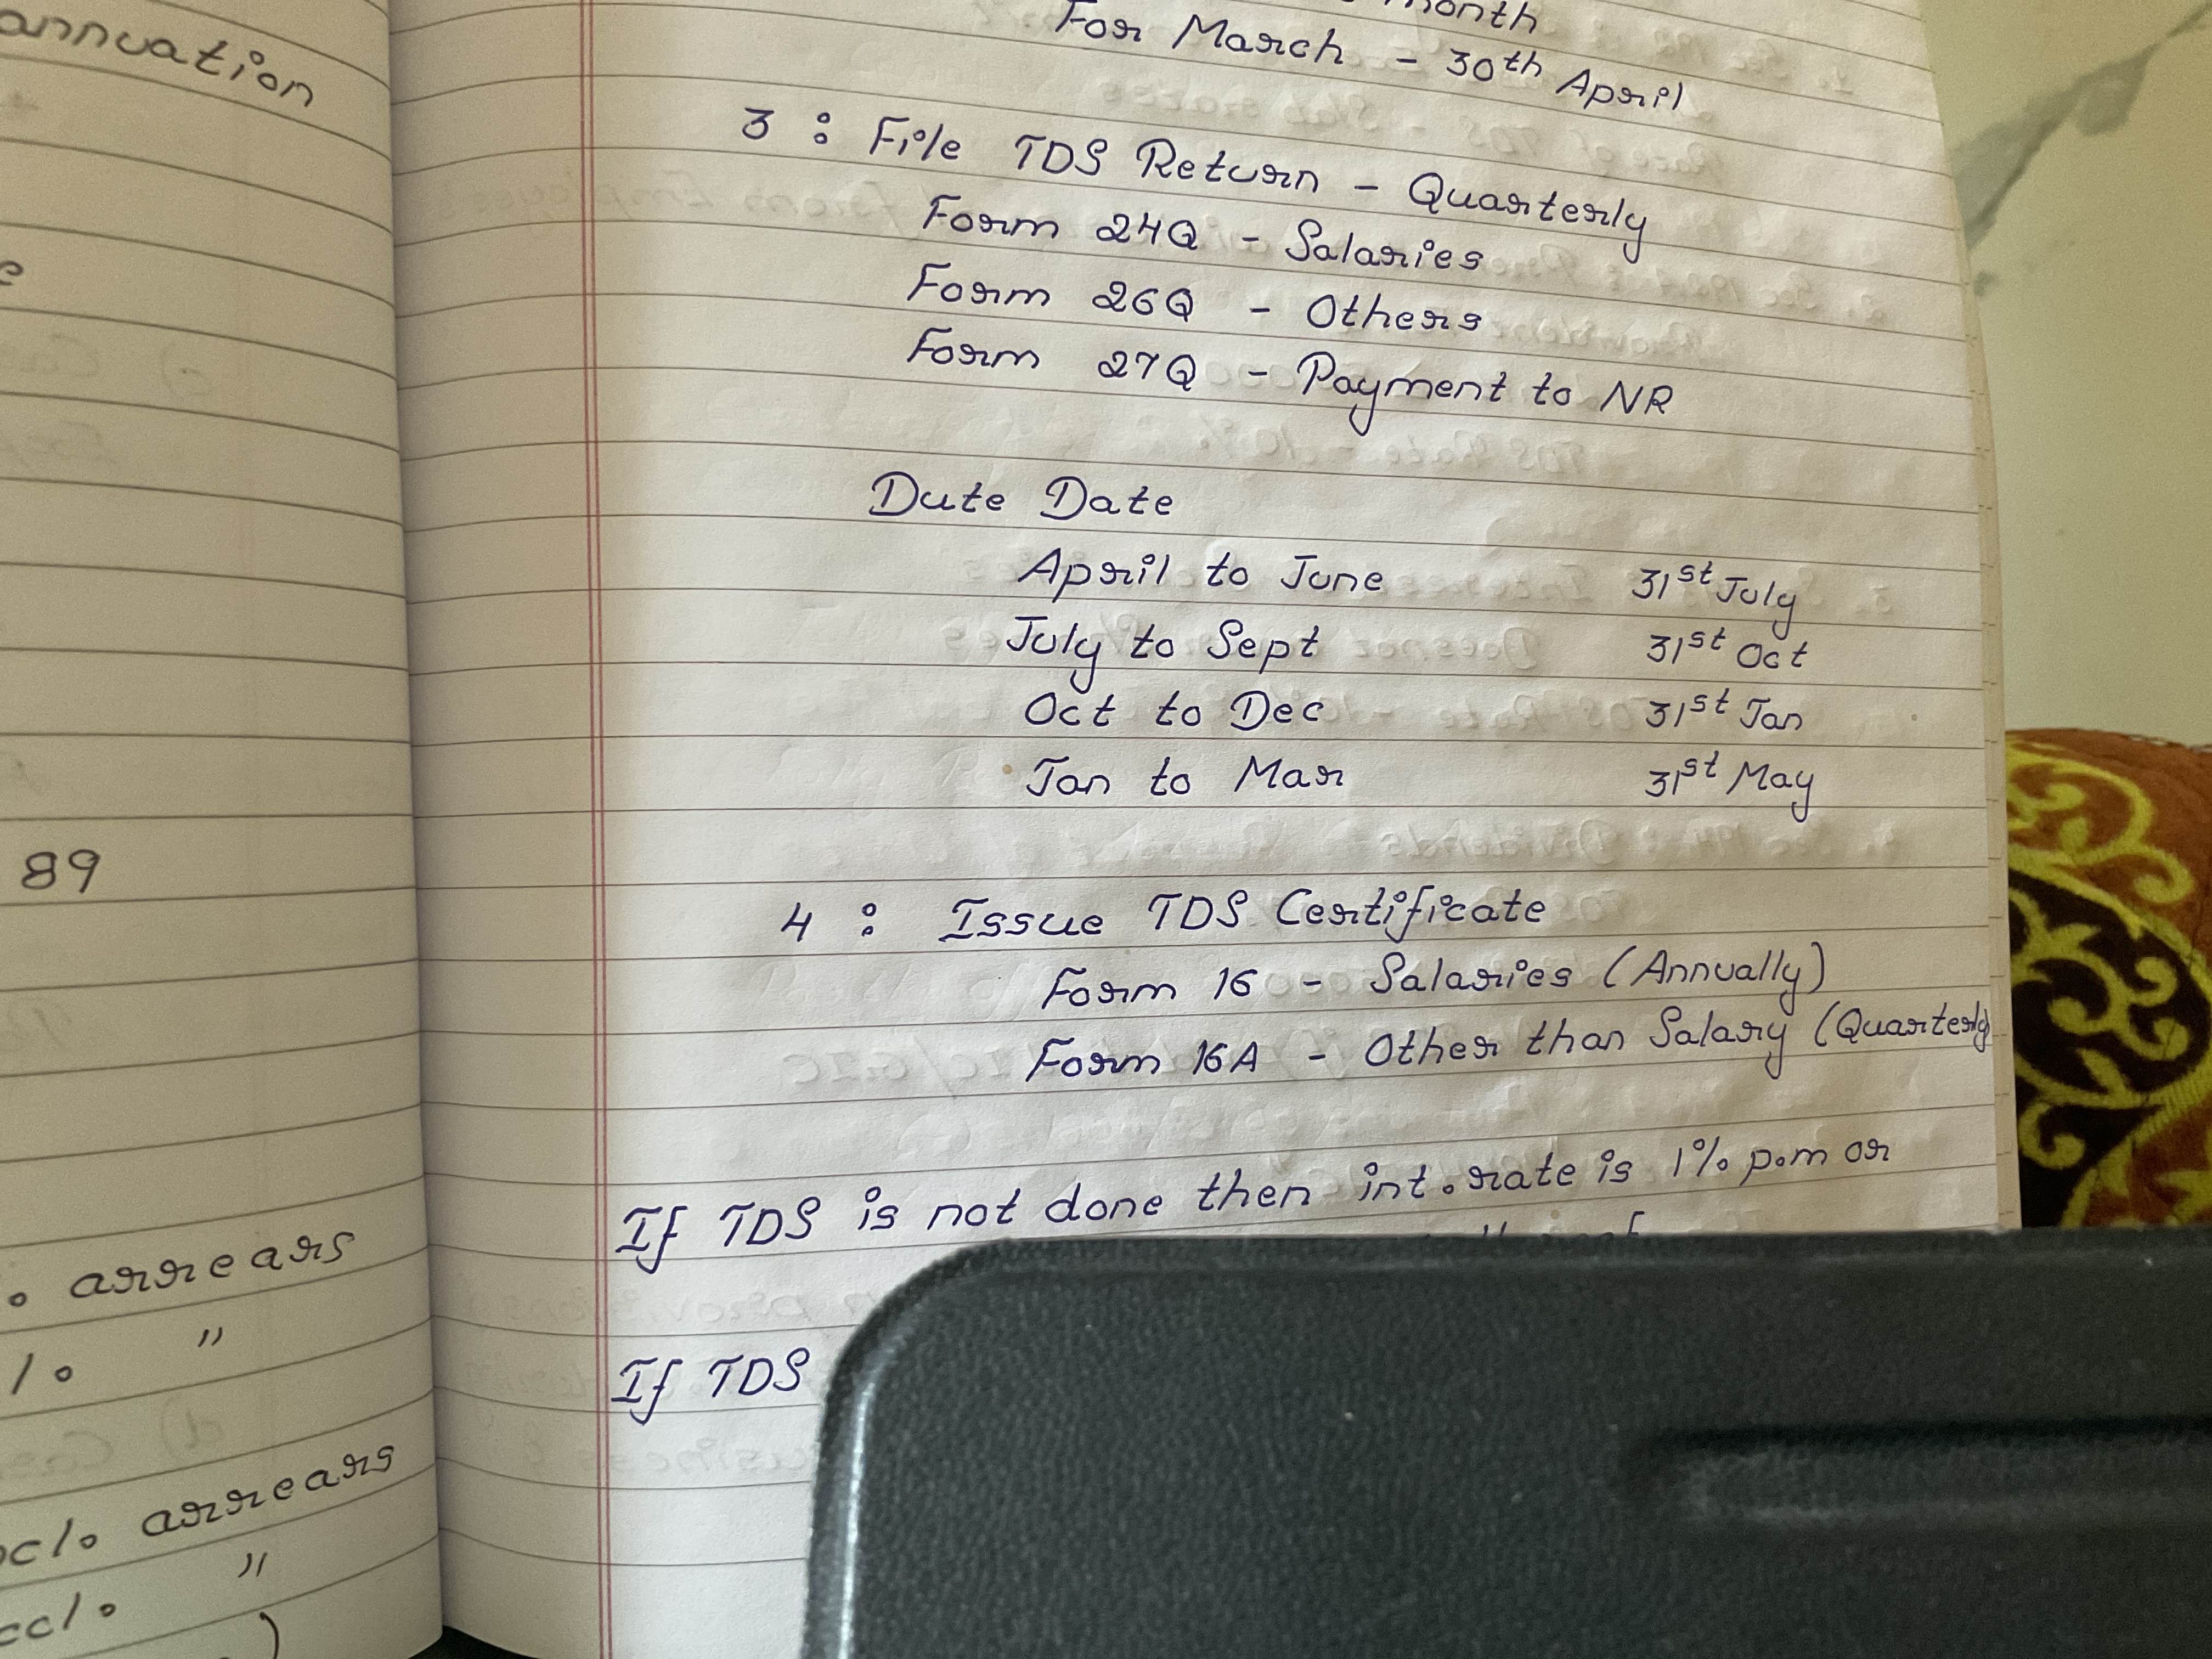 annuation
89
arrears
"
arrears
"
month
For March - 30th April
3 : File TDS Return - Quarterly
Form 24Q - Salaries
Form 26Q - Others
Form 27Q - Payment to NR
Dute Date
April to June 31st July
July to Sept 31st Oct
Oct to Dec 31st Jan
Jan to Mar 31st May
4 : Issue TDS Certificate
Form 16 - Salaries (Annually)
Form 16A - Other than Salary (Quarterly)
If TDS is not done then int. rate is 1% p.m or
If TDS